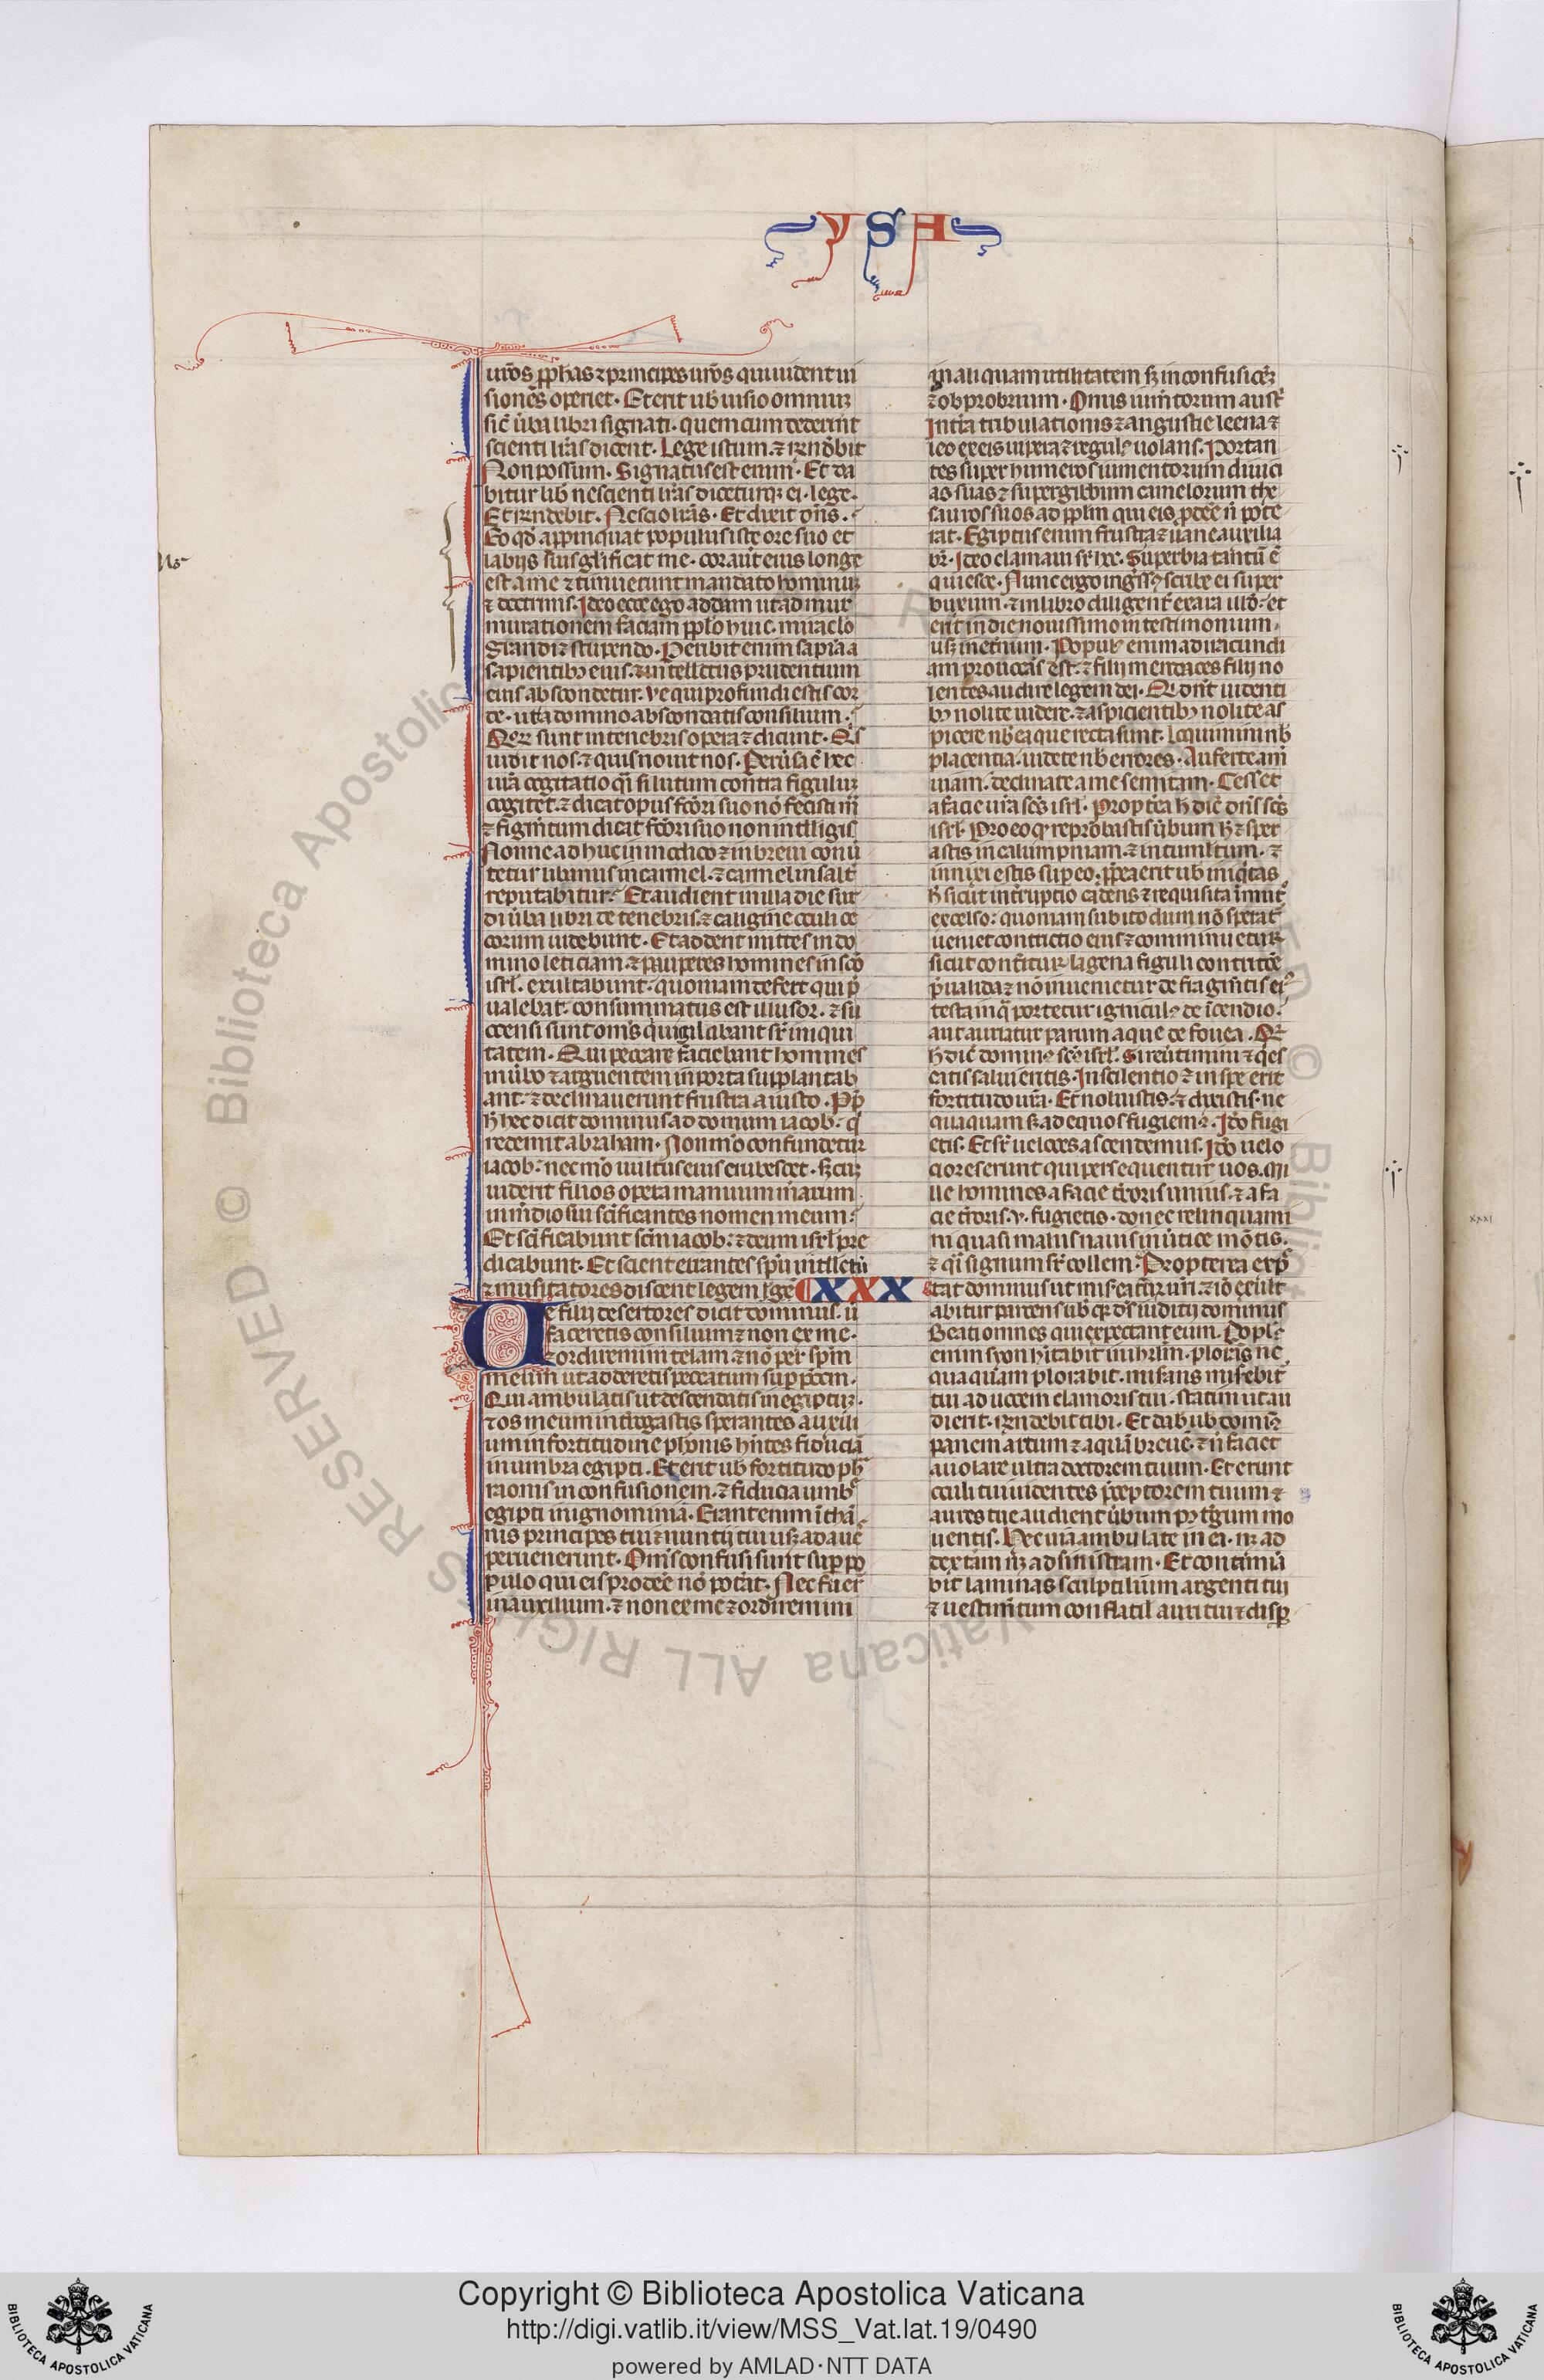 YSA
ur̄os ꝓphas ⁊ principes ur̄os qui uident ui
siones operiet. Et erit uob̄ uisio omniuꝫ
sic̄ ūba libri signati. quem cum dederint
scienti lr̄as dicent. Lege istum. ⁊ rn̄debit
Non possum. Signatus est enim. Et da
bitur lib̄ nescienti lr̄as dicetur qꝫ ei. lege.
Et rn̄debit. Nescio lr̄as. Et dixit dn̄s.
Eo qd̄ appinquat populus iste ore suo et
labijs suis glīficat me. cor aūt eius longe
est a me ⁊ timuerunt me mandato hominuꝫ
⁊ doctrinis. Ideo ecce ego addam ut admir
murationem faciam pplo huic. miraclo
grandi ⁊ stupendo. Peribit enim sapīa a
sapientibꝫ eius. ⁊ intellectus prudentium
eius abscondetur. Ve qui profundi estis cor
de. ut a domino abscondatis consilium.
Qōꝝ sunt in tenebris opera ⁊ dicunt. Qis
uidit nos. ⁊ quis nouit nos. Peruersa ē hec
ur̄a cogitatio qī si lutum contra figuluꝫ
cogitet. ⁊ dicat opus fc̄ori suo nō fecisti m̄
⁊ figm̄tum dicat fc̄ori suo non intelligis
Nonne adhuc in modico ⁊ in breui conū
tetur libanus in carmel. ⁊ carmel in salt
reputabitur. Et audient in illa die sur
di ūba libri de tenebris. ⁊ caligine oculi ce
corum uidebunt. Et addent mittes in do
mino leticiam. ⁊ pauperes homines in scō
isrl̄. exultabunt. quoniam defecit qui p̄
ualebat. consummatus est illusor. ⁊ suc
censi sunt om̄s qui uigilabant sr̄ iniqui
tatem. Qui peccare faciebant homines
in ūbo ⁊ arguentem in porta supplantab
ant. ⁊ declinauerunt frustra a iusto. Pp̄
h̄ hec dicit dominus ad domum iacob. q̄
redemit abraham. Non mō confundetur
iacob. nec mō uultus eius erubescet. sꝫ cuꝫ
uiderit filios opera manuum mearum
in medio sui scīficantes nomen meum.
Et scīficabunt scm̄ iacob. ⁊ deum isrl̄ pre
dicabunt. Et scient errantes spū intllectū
⁊ musitatores discent legem. XXX
Ve filij desertores dicit dominus. ū
faceretis consilium ⁊ non ex me.
⁊ ordiremini telam. ⁊ nō per spm̄
meum ut adderetis peccatum sup pccm̄.
Qui ambulatis ut descendatis in egiptuꝫ.
⁊ os meum in̄trogastis sperantes auxili
um in fortitudine ph̄onis hn̄tes fiduciā
in umbra egipti. Et erit uob̄ fortitudo ph̄
raonis in confusionem. ⁊ fiducia umb̄
egipti in ignominiā. Erant enim ī tha
nis principes tui ⁊ nuntij tui usꝫ ad anē
peruenerunt. Om̄s confusi sunt sup po
pulo qui eis prodeē nō potāt. Nec fuer̄
in auxilium. ⁊ non ex me ⁊ ordiremini
in aliquam utilitatem sꝫ in confusioꝫ
⁊ obprobrium. Onus iumentorum austͥ
In tr̄a tribulationis ⁊ angustie leena ⁊
leo ex eis uipera ⁊ regulꝰ uolans. Portan
tes super humeros iumentorum diuici
as suas ⁊ super gibbum camelorum the
sauros suos ad pplm̄ qui eis ꝓdeē n̄ pote
rat. Egiptus enim frustra ⁊ uane auxilia
bͥ. Ideo clamaui sr̄ hoc. Superbia tantū ē
quiesce. Nunc ergo ingressꝰ scribe ei super
buxum. ⁊ in libro diligenter exara illud. et
erit in die nouissimo in testimonium.
usꝫ in et̄num. Populꝰ enim ad iracundi
am prouocās est. ⁊ filij mendaces filij no
lentes audire legem dei. Qi dn̄t uidenti
bꝫ nolite uidere. ⁊ aspicientibꝫ nolite as
picere nb̄ ea que recta sunt. Loquimini nb̄
placentia. uidete nb̄ errores. Auferte a m̄
uiam. declinate a me semitam. Cesset
a facie nr̄a scs̄ isrl̄. Propterea h̄ dic̄ dn̄s scs̄
isrl̄. Pro eo qꝫ reprobastis ūbum h̄ ⁊ sper
astis in calumpniam ⁊ in tumultum. ⁊
innixi estis sup eo. ꝓpterea erit uob̄ iniq̄tas
h̄ sicut int̄ruptio cadens ⁊ requisita ī murͦ
excelso. quoniam subito dum nō sperat̄
ueniet contrictio eius. ⁊ comminuetur
sicut conteritur lagena figuli contritōe
p̄ualida. ⁊ nō inuenietur de fragm̄tis eiꝰ
testa in q̄ portetur igniculꝰ de īcendio.
aut auriatur parum aque de fouea. Qr̄
h̄ dic̄ dominꝰ scs̄ isrl̄. Si reutimini ⁊ qͥes
catis salui eritis. In scilentio ⁊ in spe erit
fortitudo ur̄a. Et noluistis. ⁊ dixistis. ne
quaquam sꝫ ad equos fugiemꝰ. Ideo fugi
etis. Et sr̄ ueloces ascendemus. Ideo uelo
ciores erunt qui persequentur uos. mi
lle homines a facie tr̄oris unius. ⁊ a fa
cie tr̄oris. v. fugietis. donec relinquami
ni quasi malus nauis in ūtice montis.
⁊ qī signum sr̄ collem. Propterea exp̄
tat dominus ut misereatur ur̄i. ⁊ iō exalt
abitur parcens uob̄ qꝫ ds̄ iudicij dominus
Beati omnes qui expectant eum. Poplꝰ
enim syon hītabit in ihrlm̄. plorās ne
quaquam plorabit. miserans miserebit̄
tui ad uocem clamoris tui. statim ut au
dierit. rn̄debit tibi. Et dabit uob̄ dominꝰ
panem artum ⁊ aquā breuē. ⁊ n̄ faciet
auolare ultra doctorem tuum. Et erunt
oculi tui uidentes p̄ceptorem tuum ⁊
aures tue audient ūbum pꝰ tergum mo
nentis. Hec uia ambulate in ea. nꝫ ad
dexteram nꝫ ad sinistram. Et contamīa
bit laminas sculptilium argenti tui
⁊ uestimtum conflatil auri tui ⁊ disp
xxxi
Copyright © Biblioteca Apostolica Vaticana
http://digi.vatlib.it/view/MSS_Vat.lat.19/0490
powered by AMLAD·NTT DATA
BIBLIOTECA APOSTOLICA VATICANA
BIBLIOTECA APOSTOLICA VATICANA